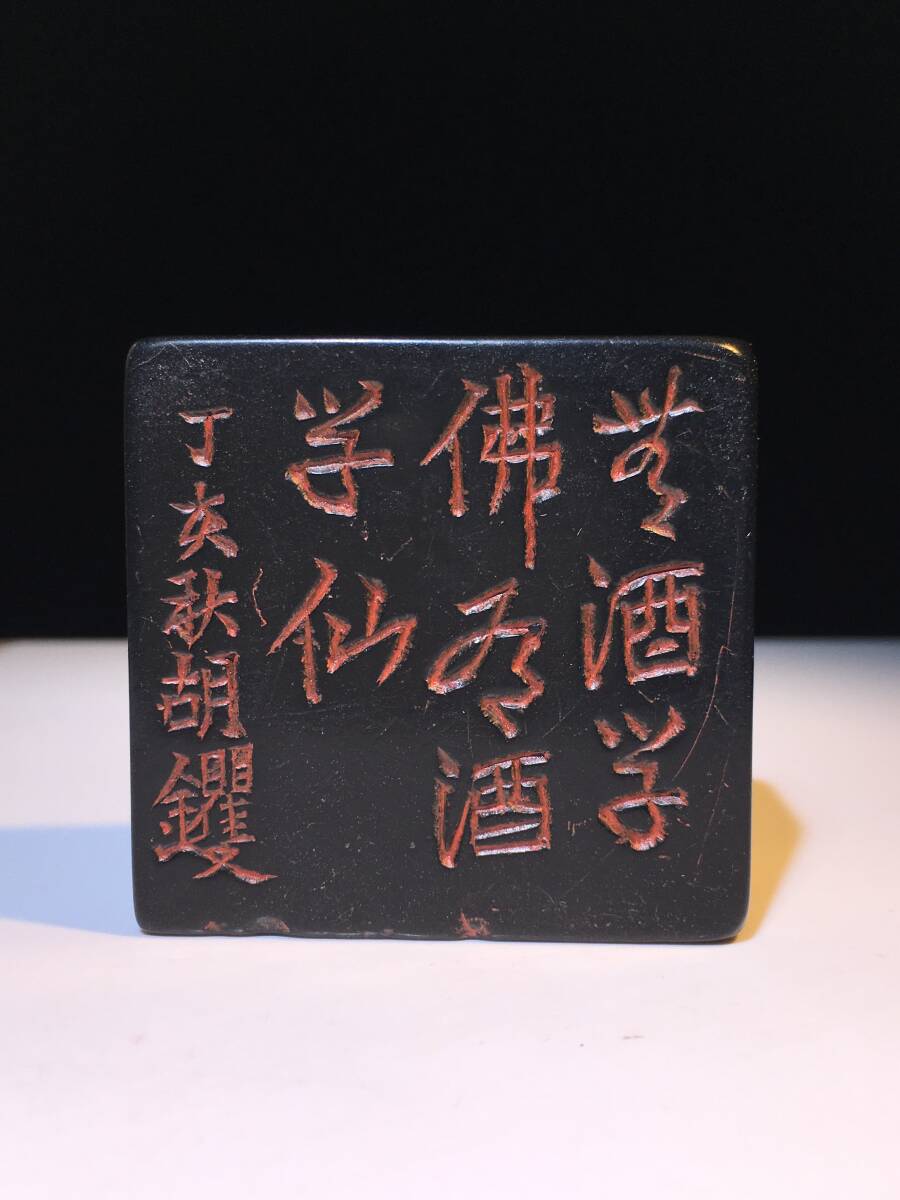 無酒学
佛有酒
学仙
丁亥秋胡钁